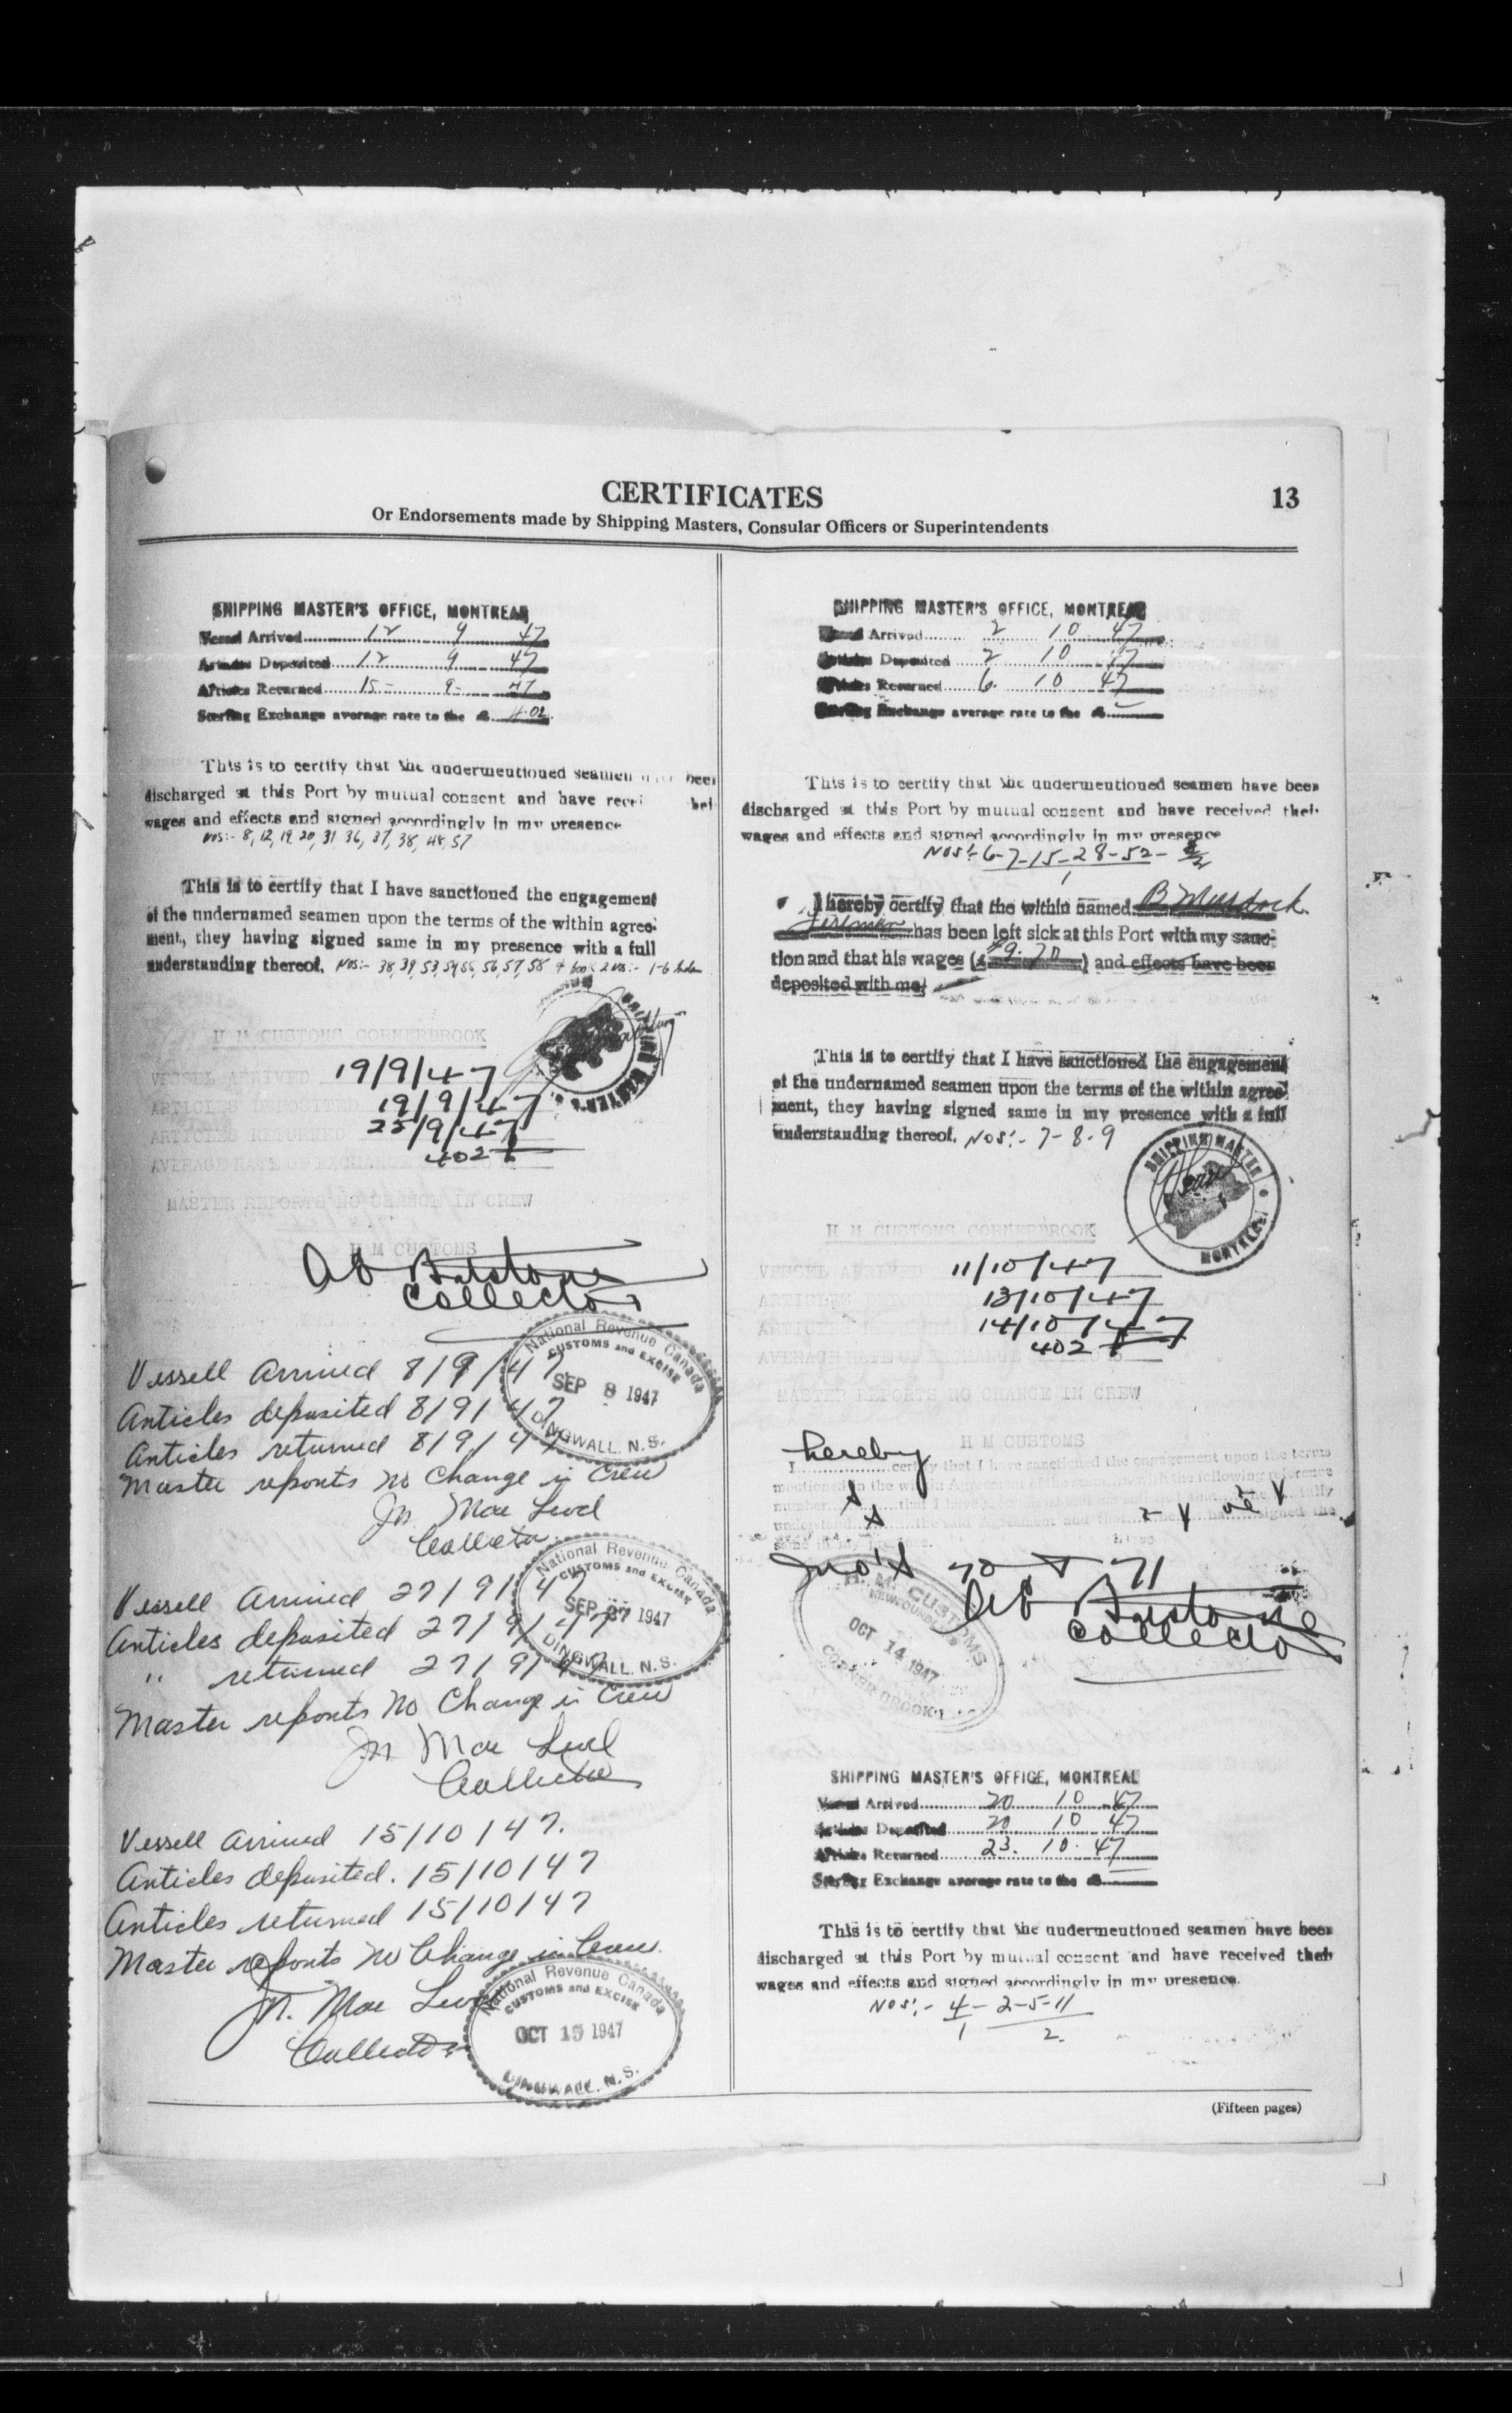 CERTIFICATES
13
Or Endorsements made by Shipping Masters, Consular Officers or Superintendents
SHIPPING MASTER'S OFFICE, MONTREAL
Vessel Arrived 12 9 47
Articles Deposited 12 9 47
Articles Returned 15 - 9 - 47
Sterling Exchange average rate to the £ 4.02
This is to certify that the undermentioned seamen been
discharged at this Port by mutual consent and have
wages and effects and signed accordingly in my presence
Nos:- 8, 12, 19, 20, 31, 36, 37, 38, 48, 57
This is to certify that I have sanctioned the engagement
of the undernamed seamen upon the terms of the within agree-
ment, they having signed same in my presence with a full
understanding thereof. Nos:- 38, 39, 53, 54, 55, 56, 57, 58 & book 2 nos:- 1-6
H M CUSTOMS CORNERBROOK
VESSEL ARRIVED 19/9/47
ARTICLES DEPOSITED 19/9/47
ARTICLES RETURNED 22/9/47
AVERAGE RATE OF EXCHANGE 402
MASTER REPORTS NO CHANGE IN CREW
H M CUSTOMS
Collector
Vessell Arrived 8/9/47
Articles deposited 8/9/47
Articles returned 8/9/47
Master reports no Change in Crew
Collector
National Revenue Canada
CUSTOMS and EXCISE
SEP 8 1947
DINGWALL, N.S.
Vessell Arrived 27/9/47
Articles deposited 27/9/47
" returned 27/9/47
Master reports no Change in Crew
Collector
National Revenue Canada
CUSTOMS and EXCISE
SEP 27 1947
DINGWALL, N.S.
Vessell Arrived 15/10/47.
Articles deposited. 15/10/47
Articles returned 15/10/47
Master reports no Change in Crew.
Collector
National Revenue Canada
CUSTOMS and EXCISE
OCT 15 1947
DINGWALL, N.S.
SHIPPING MASTER'S OFFICE, MONTREAL
Vessel Arrived 2 10 47
Articles Deposited 2 10 47
Articles Returned 6 10 47
Sterling Exchange average rate to the £ —
This is to certify that the undermentioned seamen have been
discharged at this Port by mutual consent and have received their
wages and effects and signed accordingly in my presence
Nos:- 6-7-15-28-52-
1
I hereby certify that the within named B Murdock
Fireman has been left sick at this Port with my sanc-
tion and that his wages ( 9.70 ) and effects have been
deposited with me.
This is to certify that I have sanctioned the engagement
of the undernamed seamen upon the terms of the within agree-
ment, they having signed same in my presence with a full
understanding thereof. Nos:- 7-8-9
SHIPPING MASTER
MONTREAL
H M CUSTOMS CORNERBROOK
VESSEL ARRIVED 11/10/47
ARTICLES 13/10/47
ARTICLES 14/10/47
AVERAGE RATE OF EXCHANGE 402
MASTER REPORTS NO CHANGE IN CREW
H M CUSTOMS
I hereby certify that I have sanctioned the engagement upon the terms
mentioned in the within Agreement of the following reference
number
understand the said Agreement and that signed the
same in my presence.
no's 70 + 71
Collector
H.M. CUSTOMS
NEWFOUNDLAND
OCT 14 1947
CORNER BROOK
SHIPPING MASTER'S OFFICE, MONTREAL
Vessel Arrived 20 10 47
Articles Deposited 20 10 47
Articles Returned 23. 10. 47
Sterling Exchange average rate to the £ —
This is to certify that the undermentioned seamen have been
discharged at this Port by mutual consent and have received their
wages and effects and signed accordingly in my presence.
Nos:- 4 - 2-5-11
1 2.
(Fifteen pages)